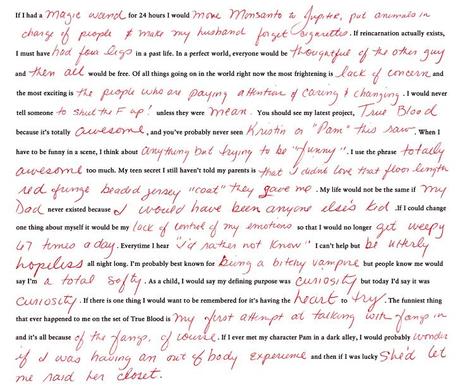 If I had a magic wand for 24 hours I would move Monsanto to Jupiter, put animals in
charge of people & make my husband forget cigarettes. If reincarnation actually exists,
I must have had four legs in a past life. In a perfect world, everyone would be thoughtful of the other guy
and then all would be free. Of all things going on in the world right now the most frightening is lack of concern and
the most exciting is the people who are paying attention & caring & changing. I would never
tell someone to shut the F up! unless they were mean. You should see my latest project, True Blood
because it's totally awesome, and you've probably never seen Kristin or "Pam" this raw. When I
have to be funny in a scene, I think about anything but trying to be "funny". I use the phrase totally
awesome too much. My teen secret I still haven't told my parents is that I didn't love that floor length
red fringe beaded jersey "coat" they gave me. My life would not be the same if my
Dad never existed because I would have been anyone else's kid. If I could change
one thing about myself it would be my lack of control of my emotions so that I would no longer get weepy
47 times a day. Everytime I hear "I'd rather not know" I can't help but be utterly
hopeless all night long. I'm probably best known for being a bitchy vampire but people who know me would
say I'm a total softy. As a child, I would say my defining purpose was curiosity but today I'd say it was
curiosity. If there is one thing I would want to be remembered for it's having the heart to try. The funniest thing
that ever happened to me on the set of True Blood is my first attempt at talking with fangs in
and it's all because of the fangs, of course. If I ever met my character Pam in a dark alley, I would probably wonder
if I was having an out of body experience and then if I was lucky she'd let
me raid her closet.